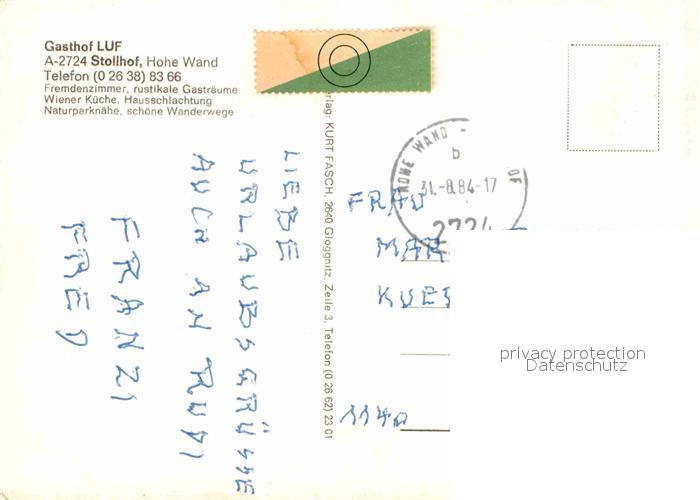 Gasthof LUF
A-2724 Stollhof, Hohe Wand
Telefon (0 26 38) 83 66
Fremdenzimmer, rustikale Gasträume
Wiener Küche, Hausschlachtung
Naturparknähe, schöne Wanderwege
LIEBE
URLAUBSGRÜSSE
AUCH AN RUDI
FRANZI
FRED
KURT FASCH, 2640 Gloggnitz, Zeile 3, Telefon (0 26 62) 23 01
HOHE WAND -
b
31.-8.84-17
2724
FRAU
1140
privacy protection
Datenschutz